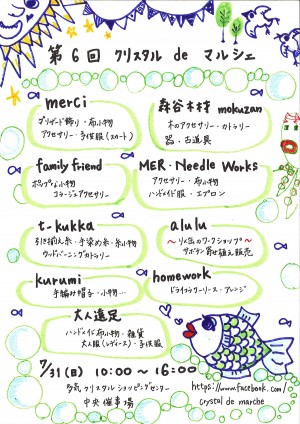 第6回 クリスタル de マルシェ
merci
プリザード飾り・布小物
アクセサリー・子供服(スカート)
森谷木材 mokuzan
木のアクセサリー・カトラリー
器・古道具
family friend
ポップな小物
コラージュアクセサリー
MER・Needle Works
アクセサリー・布小物
ハンドメイド服・エプロン
t-kukka
引き揃え糸・手染め糸・糸小物
ウッドバーニングカトラリー
alulu
〜リメ缶のワークショップ〜
サボテン寄せ植え販売
kurumi
手編み帽子・小物…
homework
ドライフラワーリース・アレンジ
大人遠足
ハンドメイド布小物・雑貨
大人服(レディース)・子供服
7/31(日) 10:00〜16:00
多気クリスタルショッピングセンター
中央催事場
https://www.facebook.com/
crystal de marche